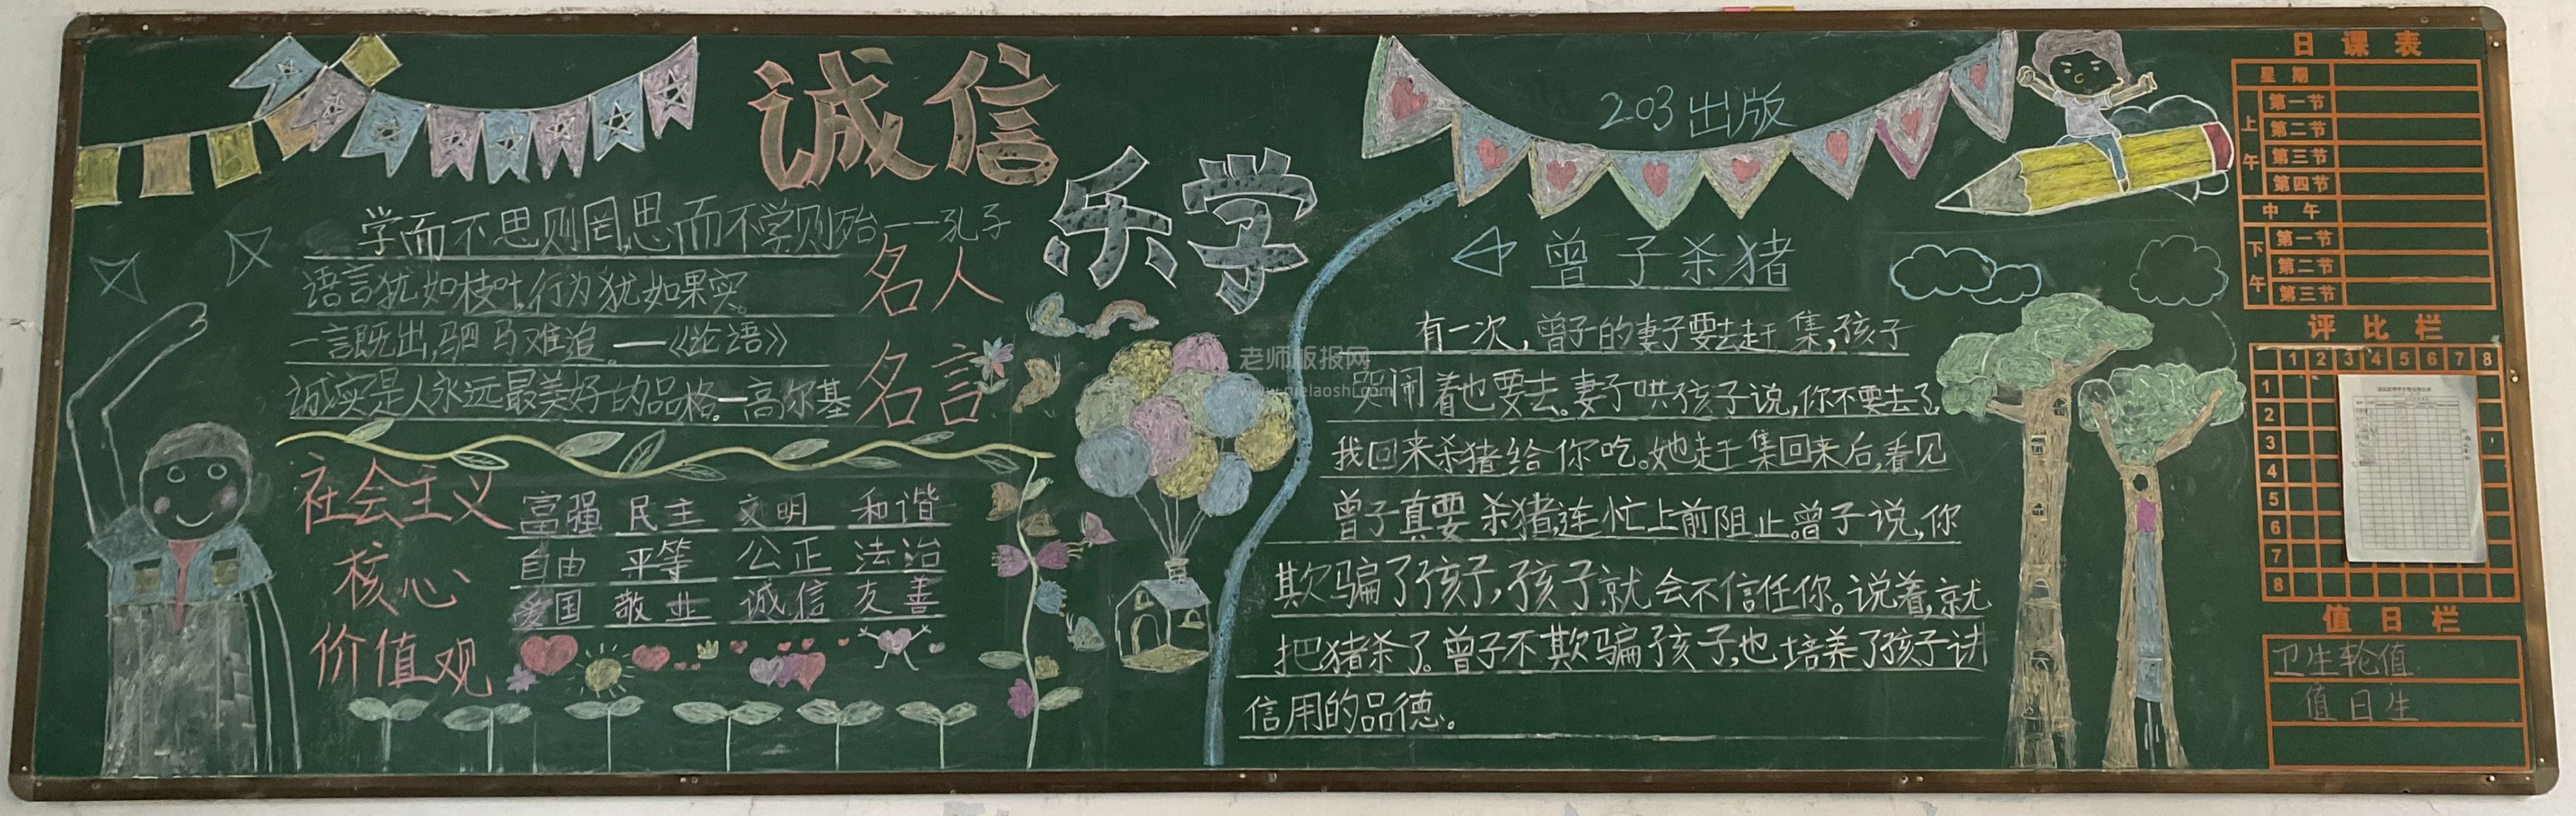 诚信
乐学
学而不思则罔,思而不学则殆——孔子
语言犹如枝叶,行为犹如果实。
一言既出,驷马难追。——《论语》
诚实是人永远最美好的品格。—高尔基
名人
名言
社会主义
核心
价值观
富强 民主 文明 和谐
自由 平等 公正 法治
爱国 敬业 诚信 友善
203出版
曾子杀猪
有一次,曾子的妻子要去赶集,孩子
哭闹着也要去。妻子哄孩子说,你不要去了,
我回来杀猪给你吃。她赶集回来后,看见
曾子真要杀猪,连忙上前阻止。曾子说,你
欺骗了孩子,孩子就会不信任你。说着,就
把猪杀了。曾子不欺骗孩子,也培养了孩子讲
信用的品德。
老师板报网
日课表
星期
上午
第一节
第二节
第三节
第四节
中午
下午
第一节
第二节
第三节
评比栏
1 2 3 4 5 6 7 8
1
2
3
4
5
6
7
8
值日栏
卫生轮值
值日生